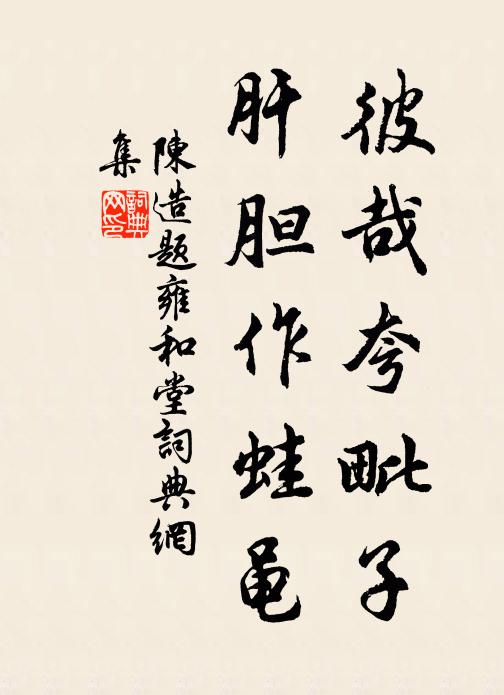 彼哉夸毗子
肝胆作蛙黾
陳造題雍和堂詞典網
集
詞典
网印